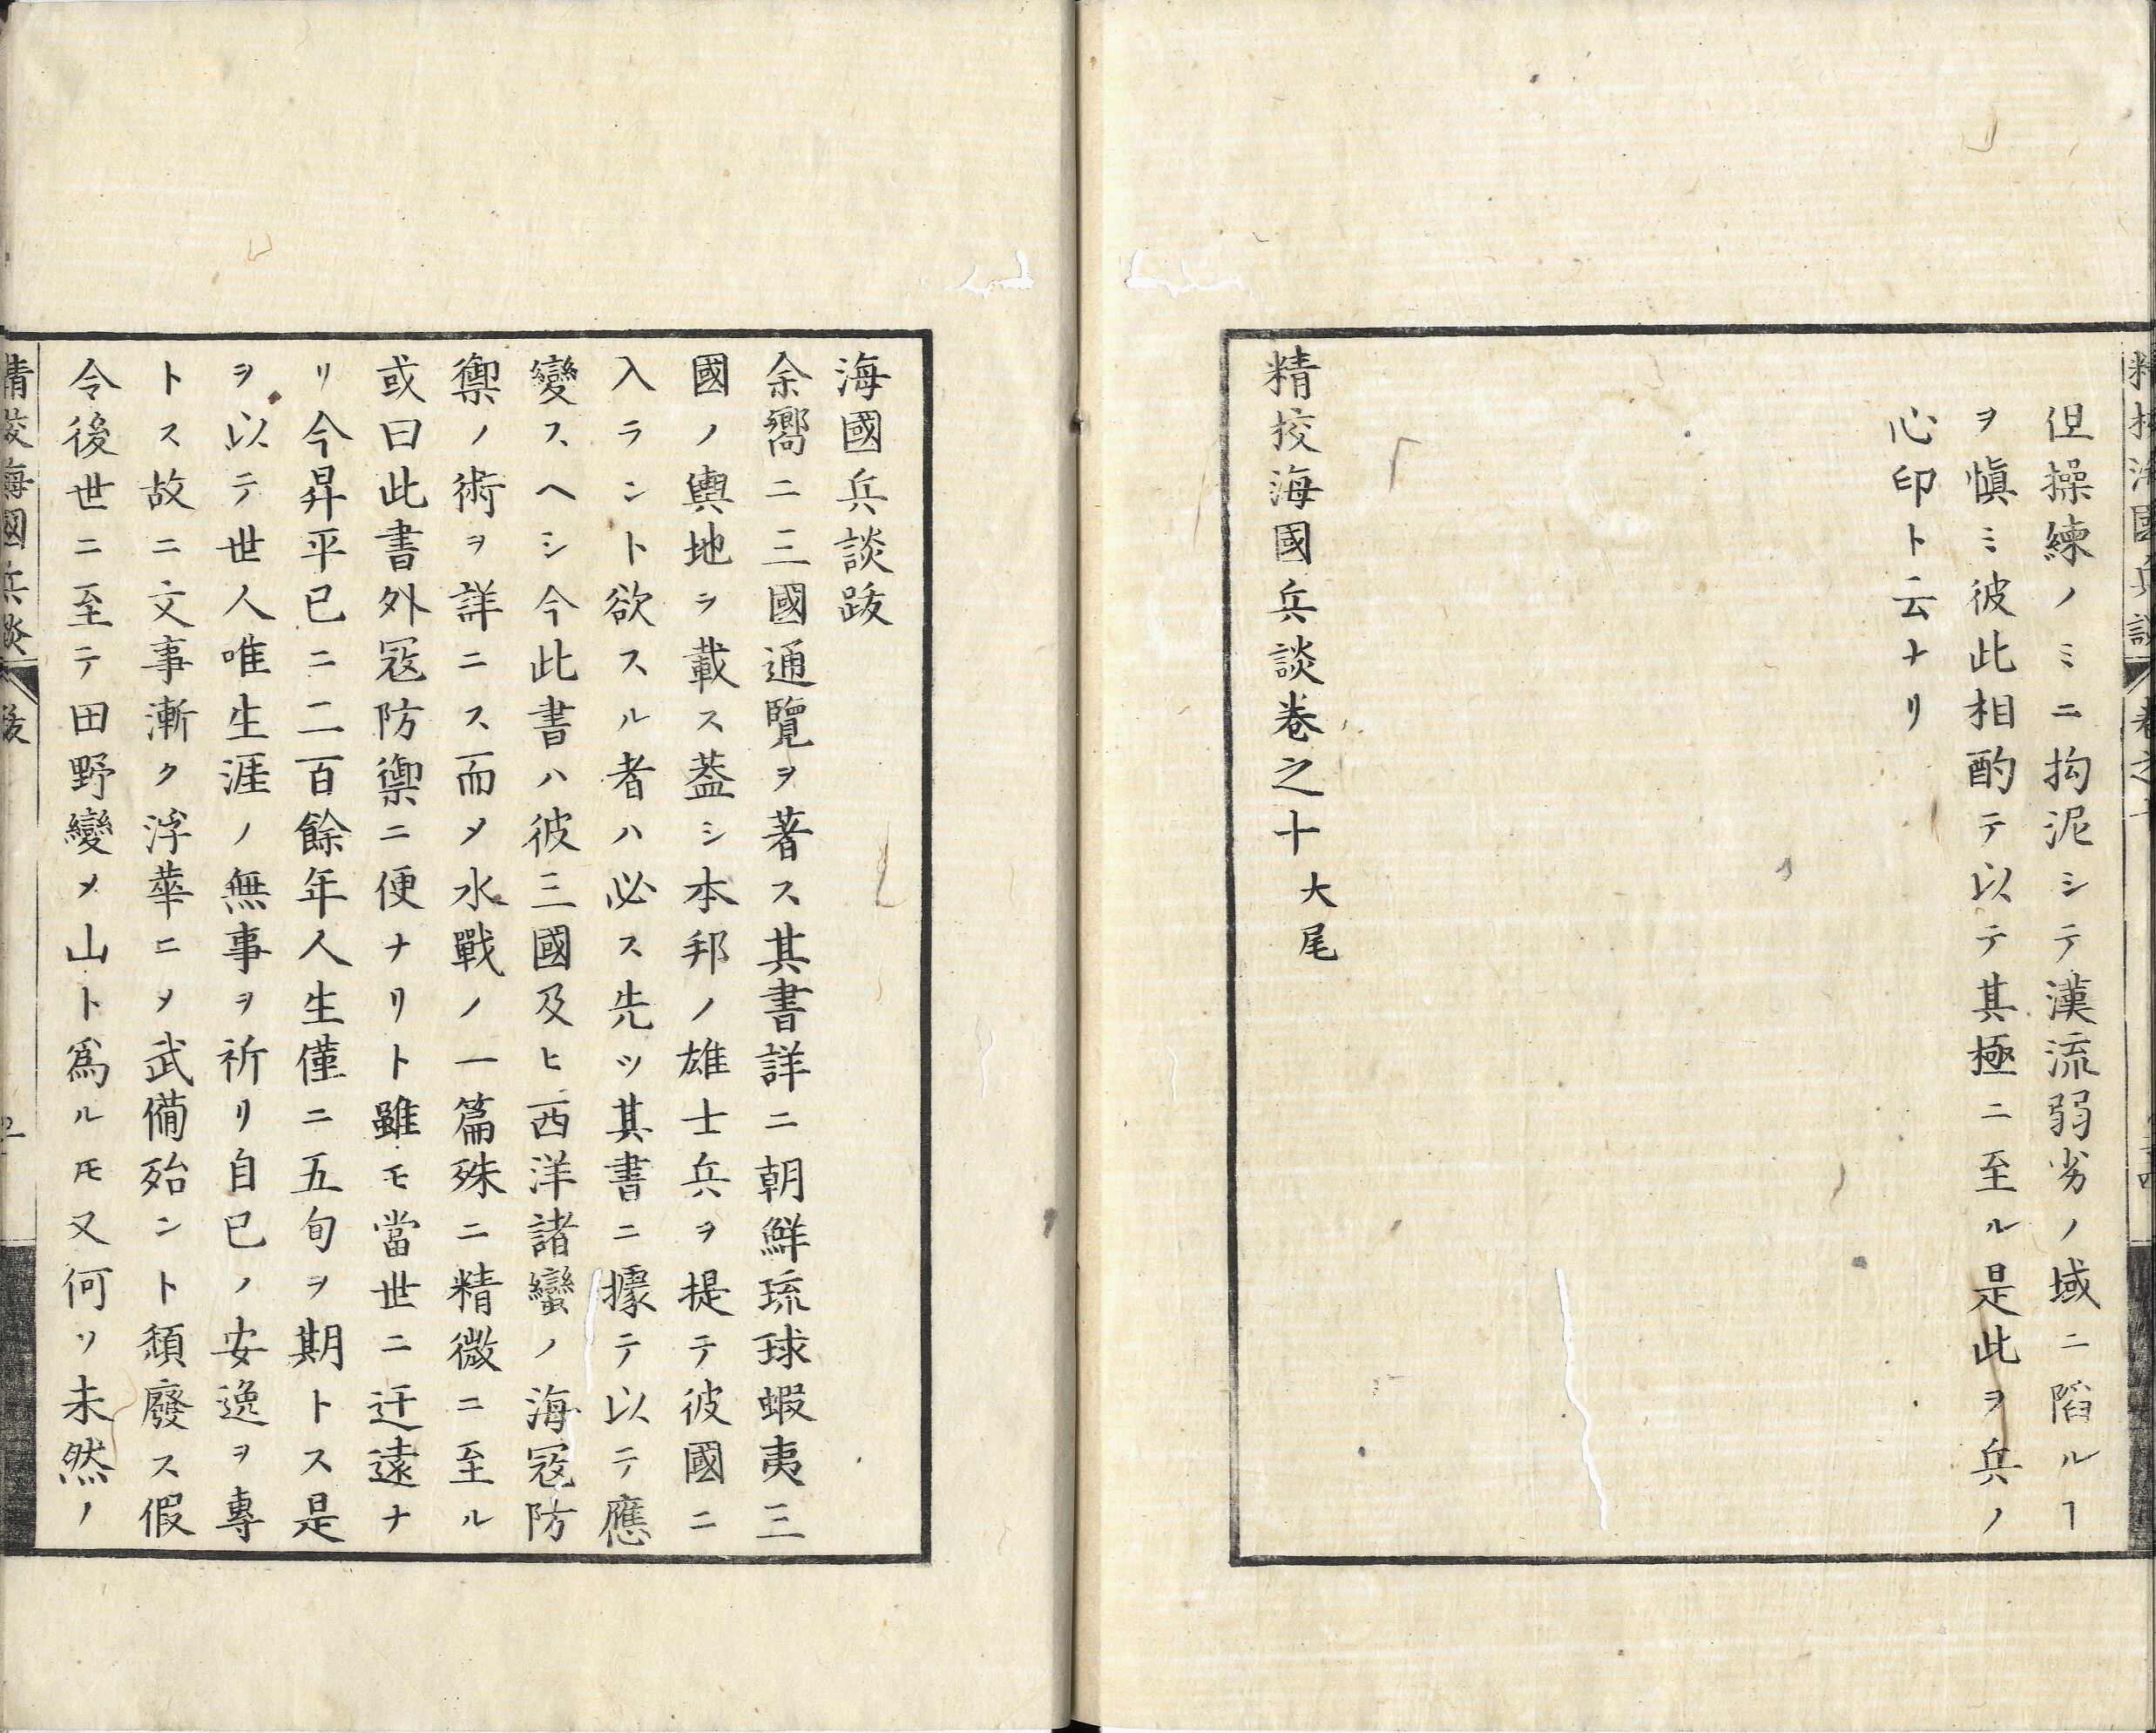 但操練ノミニ拘泥シテ漢流弱劣ノ域ニ陷ルヿ
ヲ愼ミ彼此相酌テ以テ其極ニ至ル是此ヲ兵ノ
心印ト云ナリ
精挍海國兵談卷之十 大尾
海國兵談跋
余嚮ニ三國通覽ヲ著ス其書詳ニ朝鮮琉球蝦夷三
國ノ輿地ヲ載ス葢シ本邦ノ雄士兵ヲ提テ彼國ニ
入ラント欲スル者ハ必ス先ツ其書ニ據テ以テ應
變スヘシ今此書ハ彼三國及ヒ西洋諸蠻ノ海冦防
禦ノ術ヲ詳ニス而メ水戰ノ一篇殊ニ精微ニ至ル
或曰此書外冦防禦ニ便ナリト雖モ當世ニ迂遠ナ
リ今昇平已ニ二百餘年人生僅ニ五旬ヲ期トス是
ヲ以テ世人唯生涯ノ無事ヲ祈リ自已ノ安逸ヲ專
トス故ニ文事漸ク浮華ニメ武備殆ント頽廢ス假
令後世ニ至テ田野變メ山ト爲ルモ又何ソ未然ノ
精挍海國兵談 跋